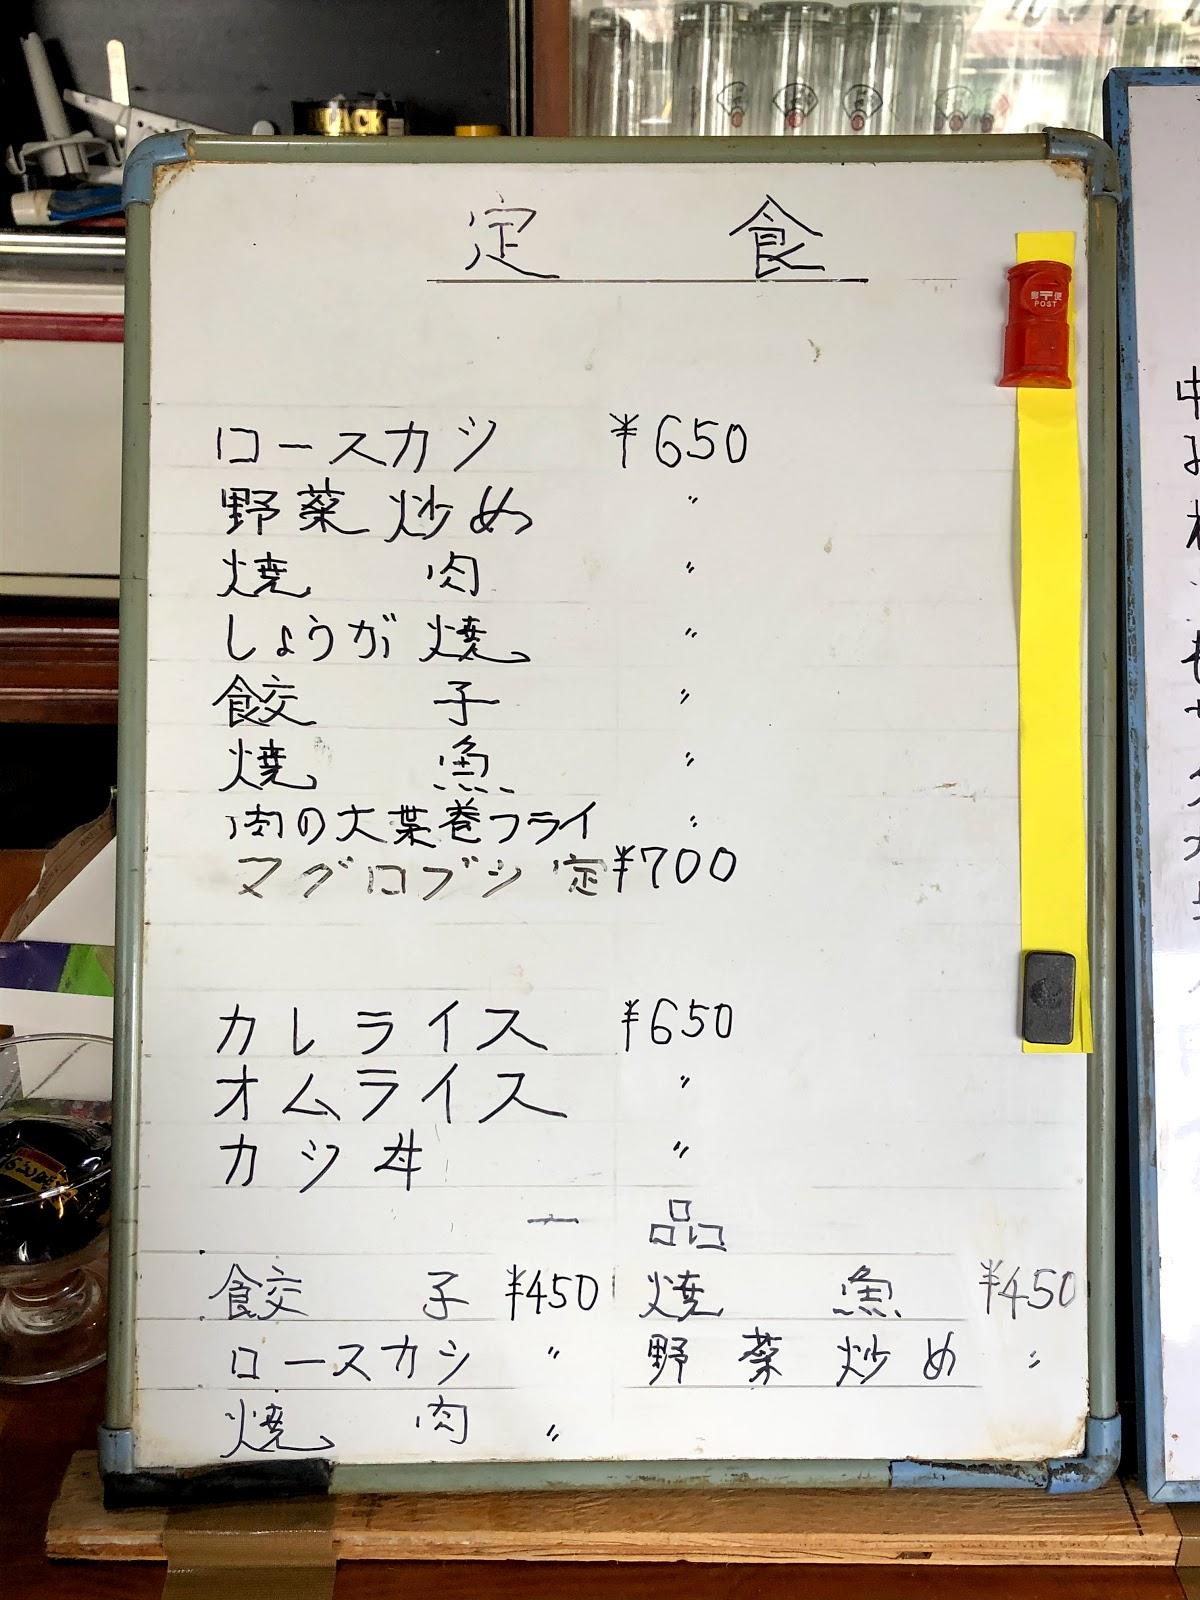 定 食
ロースカツ ¥650
野菜炒め 〃
焼 肉 〃
しょうが焼 〃
餃 子 〃
焼 魚 〃
肉の大葉巻フライ 〃
マグロブシ定 ¥700
カレライス ¥650
オムライス 〃
カツ丼 〃
一 品
餃 子 ¥450 焼 魚 ¥450
ロースカツ 〃 野菜炒め 〃
焼 肉 〃
郵〒便
POST